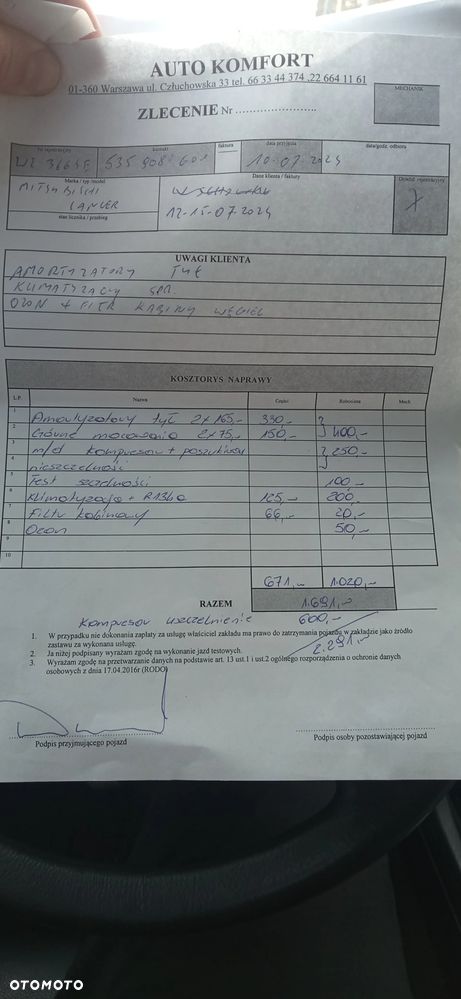 AUTO KOMFORT
01-360 Warszawa ul. Człuchowska 33 tel. 66 33 44 374 ,22 664 11 61
MECHANIK
ZLECENIE Nr
Nr rejestracyjny kontakt faktura data przyjęcia data/godz. odbioru
535 908 601 10-07-2024
Marka / typ /model Dane klienta / faktury Dowód rejestracyjny
MITSUBISHI
LANCER 12-15-07-2024
stan licznika / przebieg
UWAGI KLIENTA
AMORTYZATORY TYŁ
KLIMATYZACJ SPR.
OZON + FILTR KABINY WĘGIEL
KOSZTORYS NAPRAWY
L.P. Nazwa Części Robocizna Mech
1 Amortyzatory tył 2x165,- 330,-
2 Górne mocowania 2x75,- 150,- 400,-
3 m/d kompresor + poszukiwa 250,-
4 nieszczelności
5 Test szczelności 100,-
6 Klimatyzacja + R134a 125,- 200,-
7 Filtr kabinowy 66,- 20,-
8 Ozon 50,-
9
10
671,- 1.020,-
RAZEM 1.691,-
Kompresor uszczelnienie 600,-
2.291,-
1. W przypadku nie dokonania zapłaty za usługę właściciel zakładu ma prawo do zatrzymania pojazdu w zakładzie jako źródło
zastawu za wykonana usługę.
2. Ja niżej podpisany wyrażam zgodę na wykonanie jazd testowych.
3. Wyrażam zgodę na przetwarzanie danych na podstawie art. 13 ust.1 i ust.2 ogólnego rozporządzenia o ochronie danych
osobowych z dnia 17.04.2016r (RODO)
Podpis przyjmującego pojazd Podpis osoby pozostawiającej pojazd
OTOMOTO